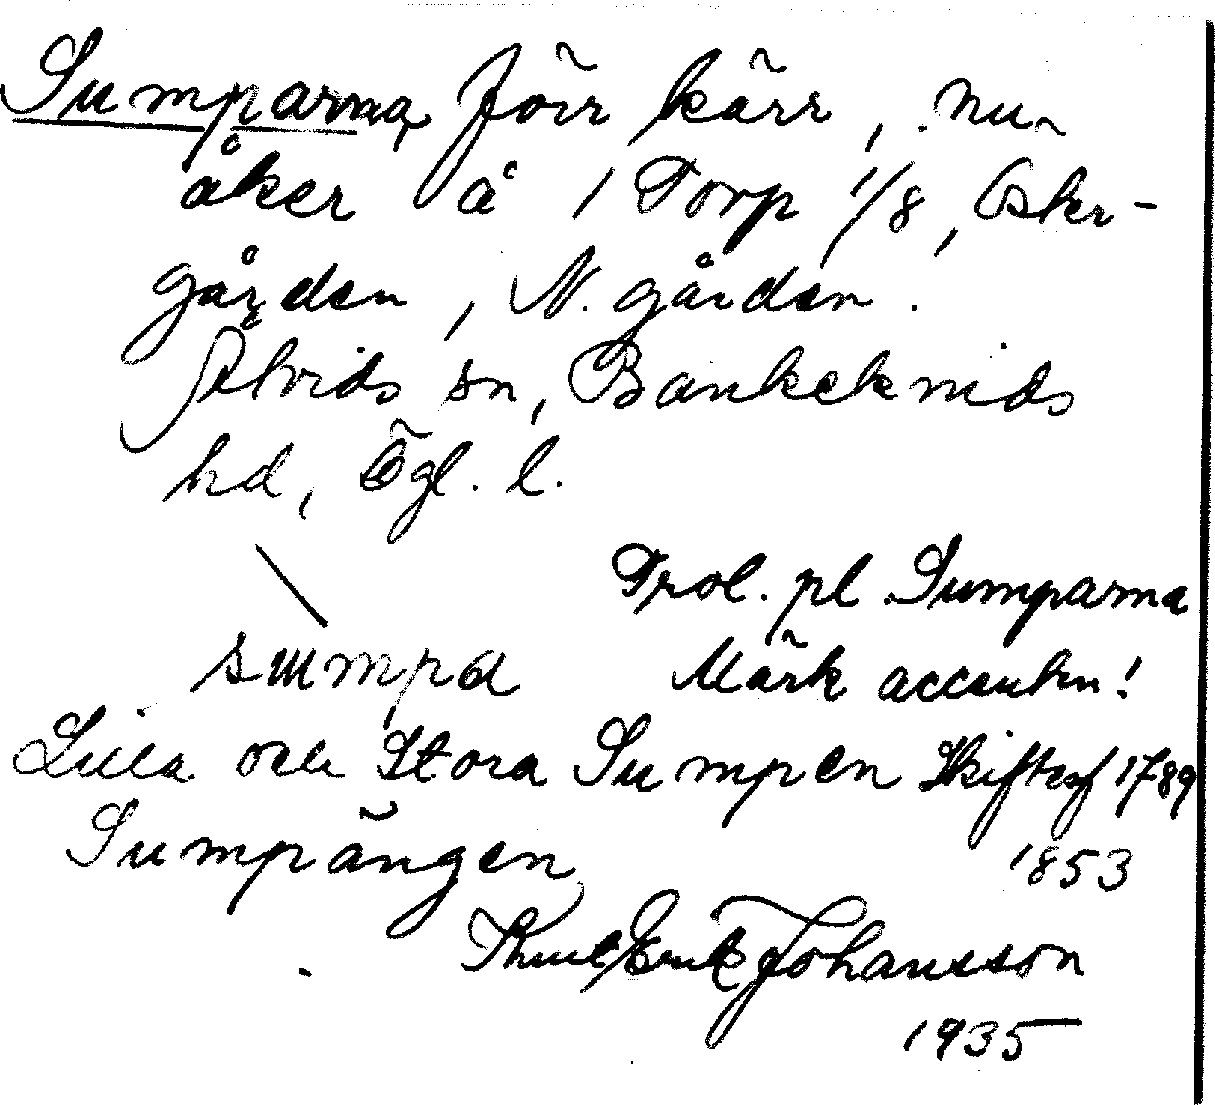 Sumparna, förr kärr, nu
åker å 1 Torp 1/8, Öster-
gården, N. gården.
Åtvids sn, Bankekinds
hd, Ögl. l.
Prol. pl Sumparna
sumpa Märk accenten!
Lilla och Stora Sumpen Skiftesf 1789
Sumpängen 1853
Knut Erik Johansson
1935